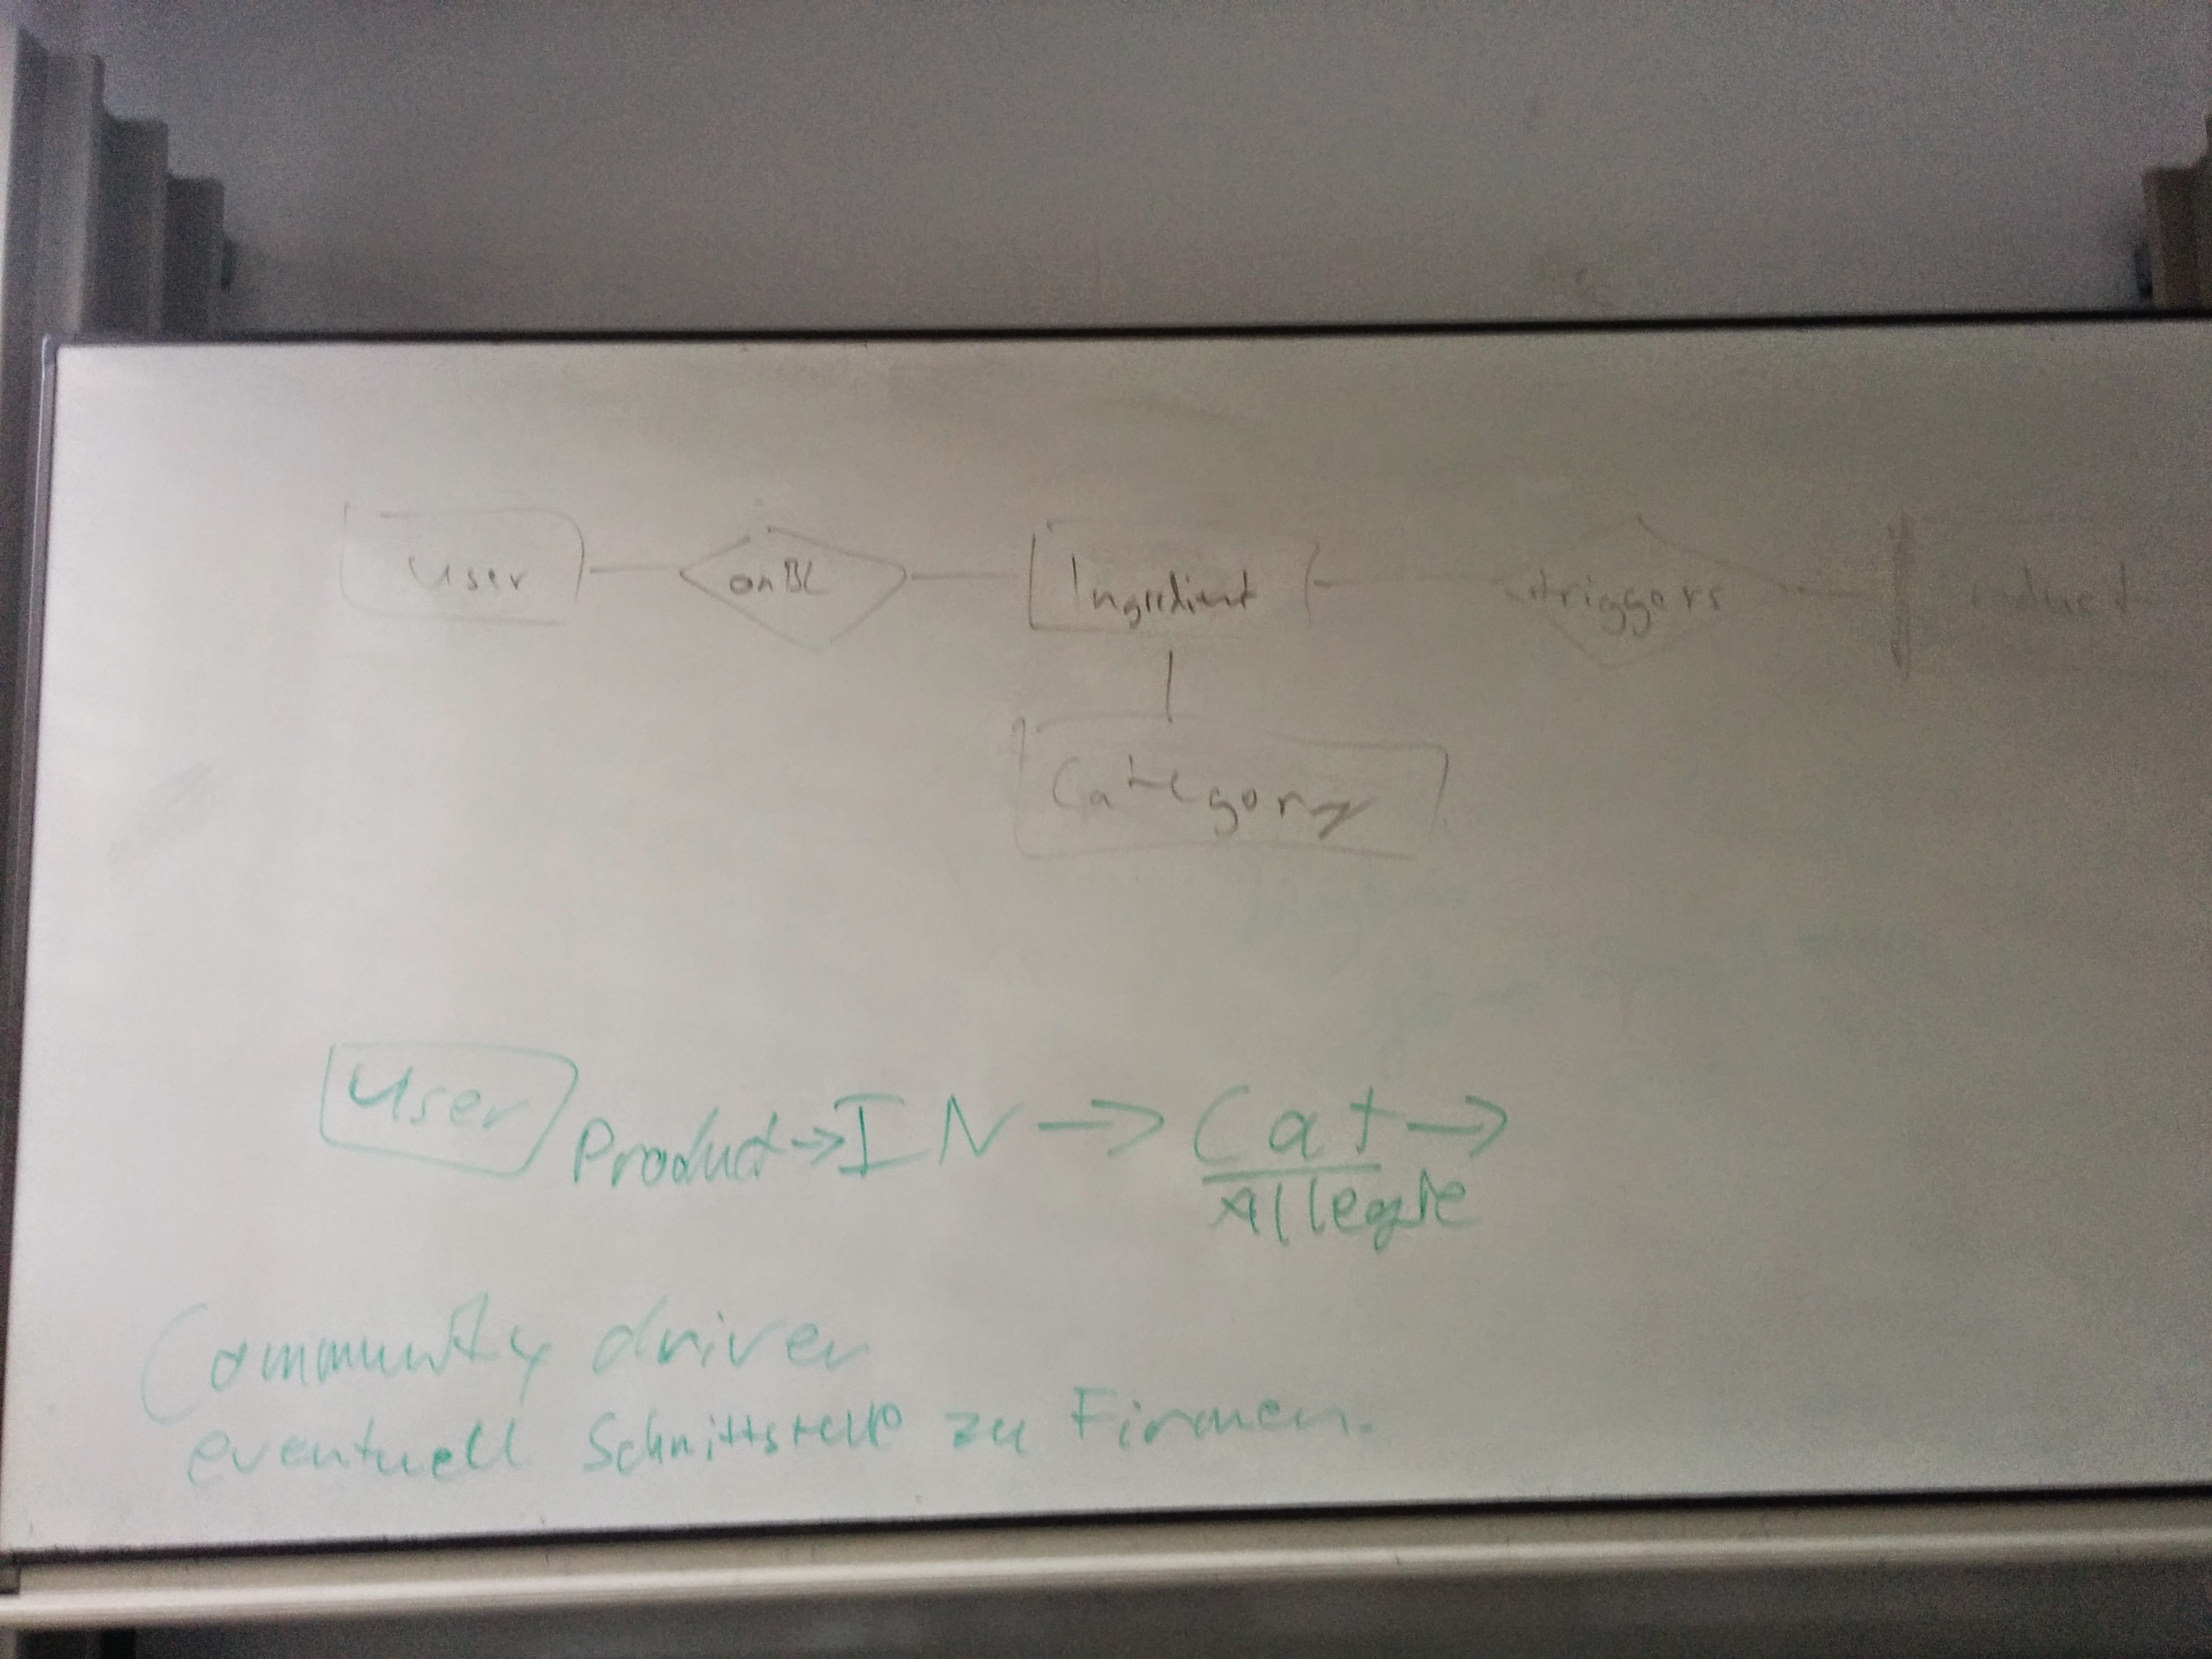 User onBL Ingredient triggers
Category
User Product → IN → Cat →
Allergie
Community driven
eventuell Schnittstelle zu Firmen.